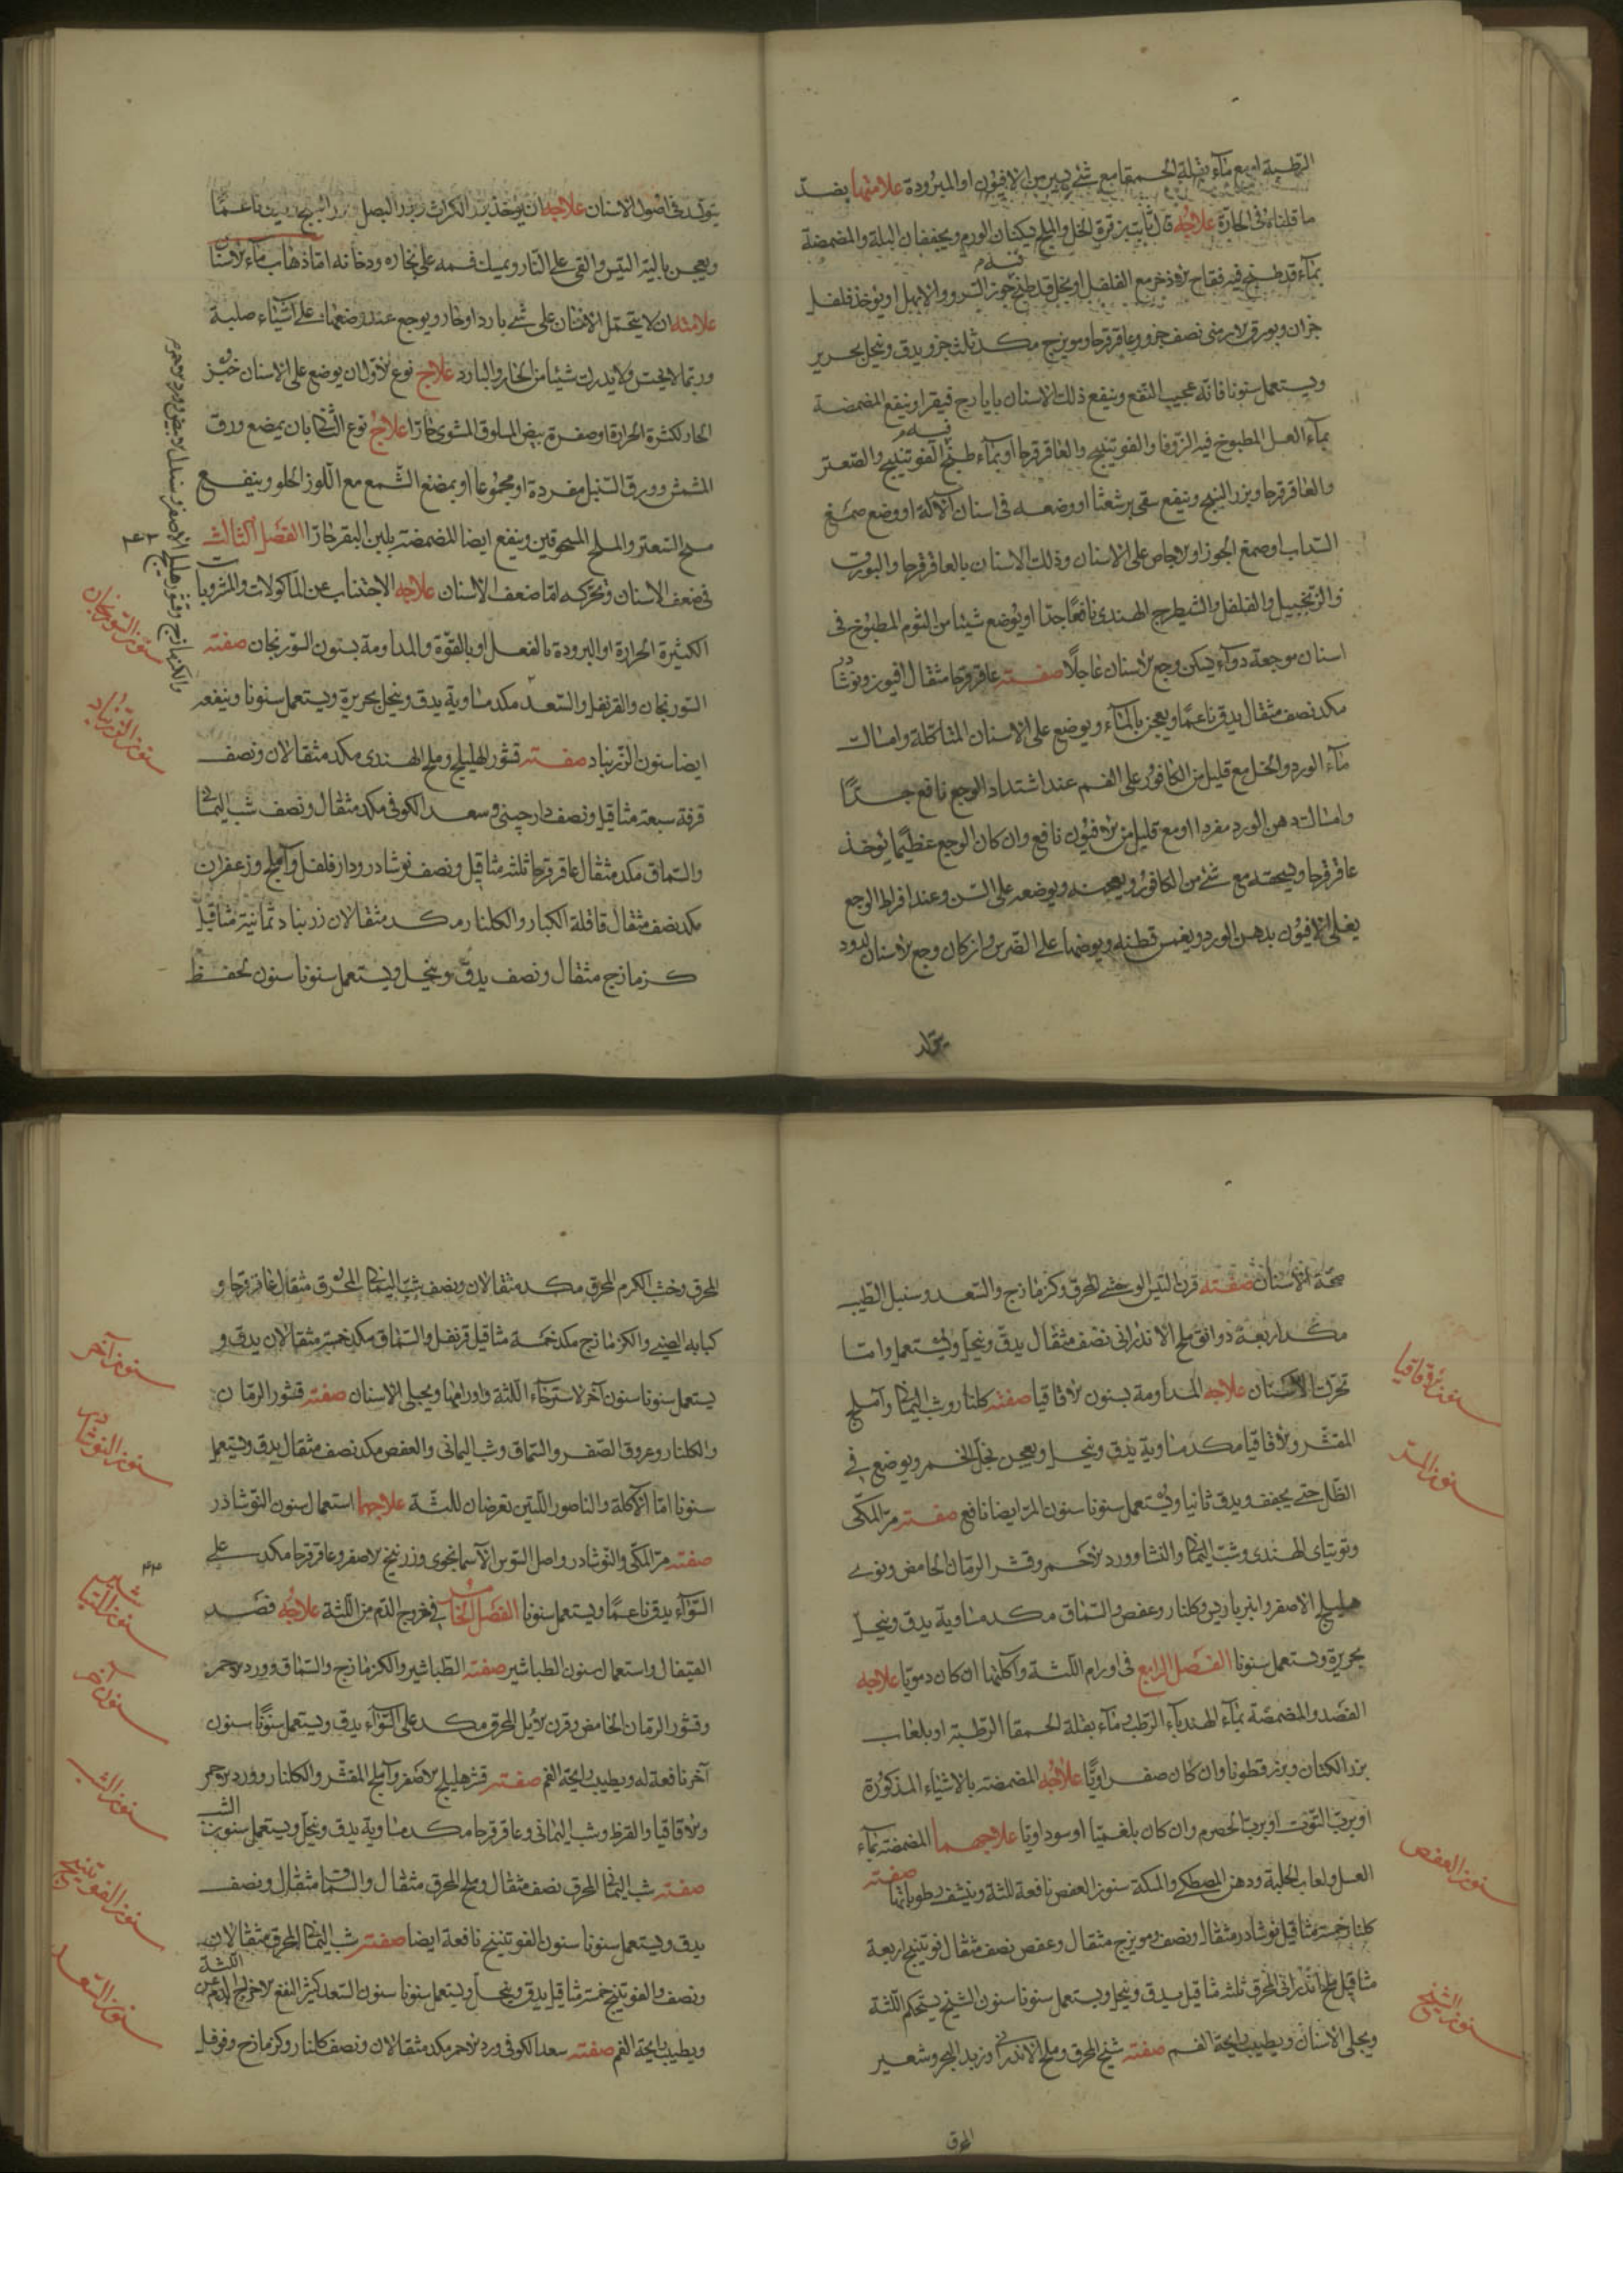 الرطبة او مع ماء بقلة الحمقا مع شئ يسير من الافيون او المبرودة علامتها بضد
ما قلناه فى الحارة علاجه قال ثابت بن قرة الخل والملح يسكنان الورم ويجففان البلة والمضمضة
بماء قد طبخ فيه فقاح الاذخر مع الفلفل او بخل قد طبخ فيه جوز السرو والابهل او يؤخذ فلفل
جزان وبورق الارمنى نصف جزو وعاقرقرحا ومويزج مكد ثلث جزو يدق وينخل بحرير
ويستعمل سنونا فانه عجيب النفع وينفع ذلك الاسنان بايارج فيقرا وينفع المضمضة
بماء العسل المطبوخ فيه الزوفا والفوتنيج والعاقرقرحا او بماء طبخ فيه الفوتنيج والصعتر
والعاقرقرحا وبزر البنج وينفع سقى برشعثا او وضعه فى اسنان الآكلة او وضع صمغ
السداب او صمغ الجوز او الاجاص على الاسنان وذلك الاسنان بالعاقرقرحا والبورق
والزنجبيل والفلفل والشيطرج الهندى نافعا جدا او يوضع شيئا من الثوم المطبوخ فى
اسنان موجعة دواء يسكن وجع الاسنان عاجلا صفته عاقرقرحا مثقال افيون ونوشادر
مكد نصف مثقال يدق ناعما ويعجن بالماء ويوضع على الاسنان المتاكلة وامساك
ماء الورد والخل مع قليل من الكافور على الفم عند اشتداد الوجع نافع جدا
وامساك دهن الورد مفردا او مع قليل من الافيون نافع وان كان الوجع عظيما يؤخذ
عاقرقرحا ويسحقه مع شئ من الكافور ويعجنه ويوضعه على السن وعند افراط الوجع
يغلى الافيون بدهن الورد ويغمس قطنه ويوضعها على الضرس وان كان وجع الاسنان لدود
يتولد
يتولد فى اصول الاسنان علاجه ان يؤخذ بزر الكراث وبزر البصل وبزر البنج ناعما
ويعجن بالية التيس والقى على النار ويميل فمه على بخاره ودخانه اما ذهاب ماء الاسنان
علامته ان لا يتحمل الاسنان على شئ بارد او حار ويوجع عند وضعها على اشياء صلبة
وربما لا يحس ولا يدرك شيئا من الحار والبارد علاج نوع الاول ان يوضع على الاسنان خبز
الحار لكثرة الحرارة او صفرة بيض المسلوق المشوى حارا علاج نوع الثانى بان يمضغ ورق
المشمش وورق السنبل مفردة او مجموعا او بمضغ الشمع مع اللوز الحلو وينفع
مسح السعتر والملح المسحوقين وينفع ايضا المضمضة بلبن البقر حارا الفصل الثالث
فى ضعف الاسنان وتحركه اما ضعف الاسنان علاجه الاجتناب عن المأكولات والمشروبات
الكثيرة الحرارة او البرودة بالفعل او بالقوة والمداومة بسنون السورنجان صفته
السورنجان والقرنفل والسعد مكد مساوية يدق وينخل بحريرة ويستعمل سنونا وينفعه
ايضا سنون الزرنباد صفته قشور الهليلج وملح الهندى مكد مثقالان ونصف
قرفة سبعة مثاقيل ونصف دارچينى وسعد الكوفى مكد مثقال ونصف شب اليمانى
والسماق مكد مثقال عاقرقرحا ثلثة مثاقيل ونصف نوشادر ودار فلفل وآملج وزعفران
مكد نصف مثقال قاقلة الكبار والكلنار مكد مثقالان زرنباد ثمانية مثاقيل
كزمازج مثقال ونصف يدق وينخل ويستعمل سنونا سنون لحفظ
سنون السورنجان
سنون الزرنباد
٤٣
صحة الاسنان صفته قرن التيس الوحشى المحرق وكزمازج والسعد وسنبل الطيب
مكد اربعة دوانق ملح الاندرانى نصف مثقال يدق وينخل ويستعمل واما
تحرك الاسنان علاجه المداومة بسنون الاقاقيا صفته كلنار وشب اليمانى وآملج
المقشر والاقاقيا مكد مساوية يدق وينخل ويعجن بخل الخمر ويوضع فى
الظل حتى يجفف ويدق ثانيا ويستعمل سنونا سنون المر ايضا نافع صفته مر المكى
وتوتياى الهندى وشب اليمانى والنشا وورد الاحمر وقشر الرمان الحامض ونوى
هليلج الاصفر وانبرباريس وكلنار وعفص والسماق مكد مساوية يدق وينخل
بحريرة ويستعمل سنونا الفصل الرابع فى اورام اللثة وآكلتها ان كان دمويا علاجه
الفصد والمضمضة بماء الهندباء الرطب وماء بقلة الحمقا الرطبة او بلعاب
بزر الكتان وبزر قطونا وان كان صفراويا علاجه المضمضة بالاشياء المذكورة
او برب التوت او برب الحصرم وان كان بلغميا او سوداويا علاجهما المضمضة بماء
العسل ولعاب الحلبة ودهن المصطكى والمكة سنون العفص نافعة للثة وينشف رطوباتها صفته
كلنار خمسة مثاقيل نوشادر مثقال ونصف ومويزج مثقال وعفص نصف مثقال فوتنيج اربعة
مثاقيل ملح اندرانى المحرق ثلثة مثاقيل يدق وينخل ويستعمل سنونا سنون الشيخ يستحكم اللثة
ويجلى الاسنان ويطيب رايحة الفم صفته شيخ المحرق وملح الاندرانى وزبد البحر وشعير
المحرق
سنون الاقاقيا
سنون المر
سنون العفص
سنون الشيخ
المحرق وخشب الكرم المحرق مكد مثقالان ونصف شب اليمانى المحرق مثقال عاقرقرحا و
كبابه الصينى والكزمازج مكد خمسة مثاقيل قرنفل والسماق مكد خمسة مثقالان يدق و
يستعمل سنونا سنون آخر لاسترخاء اللثة واورامها ويجلى الاسنان صفته قشور الرمان
والكلنار وعروق الصفر والسماق وشب اليمانى والعفص مكد نصف مثقال يدق ويستعمل
سنونا اما الآكلة والناصور اللتين تعرضان للثة علاجهما استعمال سنون النوشادر
صفته مر المكى والنوشادر واصل السوس الآسمانجوى وزرنيخ الاصفر وعاقرقرحا مكد على
السواء يدق ناعما ويستعمل سنونا الفصل الخامس فى خروج الدم من اللثة علاجه فصد
القيفال واستعمال سنون الطباشير صفته الطباشير والكزمازج والسماق وورد الاحمر
وقشور الرمان الحامض وقرن الايل المحرق مكد على السواء يدق ويستعمل سنونا سنون
آخر نافعة له ويطيب رايحة الفم صفته قشر هليلج الاصفر وآملج المقشر والكلنار وورد الاحمر
والاقاقيا والقرظ وشب اليمانى وعاقرقرحا مكد مساوية يدق وينخل ويستعمل سنون الشب
صفته شب اليمانى المحرق نصف مثقال وملح المحرق مثقال والسماق مثقال ونصف
يدق ويستعمل سنونا سنون الفوتنيج نافعة ايضا صفته شب اليمانى المحرق مثقالان
ونصف والفوتنيج خمسة مثاقيل يدق وينخل ويستعمل سنونا سنون السعد كثير النفع لاخراج الدم عن اللثة
ويطيب رايحة الفم صفته سعد الكوفى ورد الاحمر مكد مثقالان ونصف كلنار وكزمازج وفوفل
سنون آخر
سنون النوشادر
٤٤
سنون الطباشير
سنون آخر
سنون الشب
سنون الفوتنيج
سنون السعد